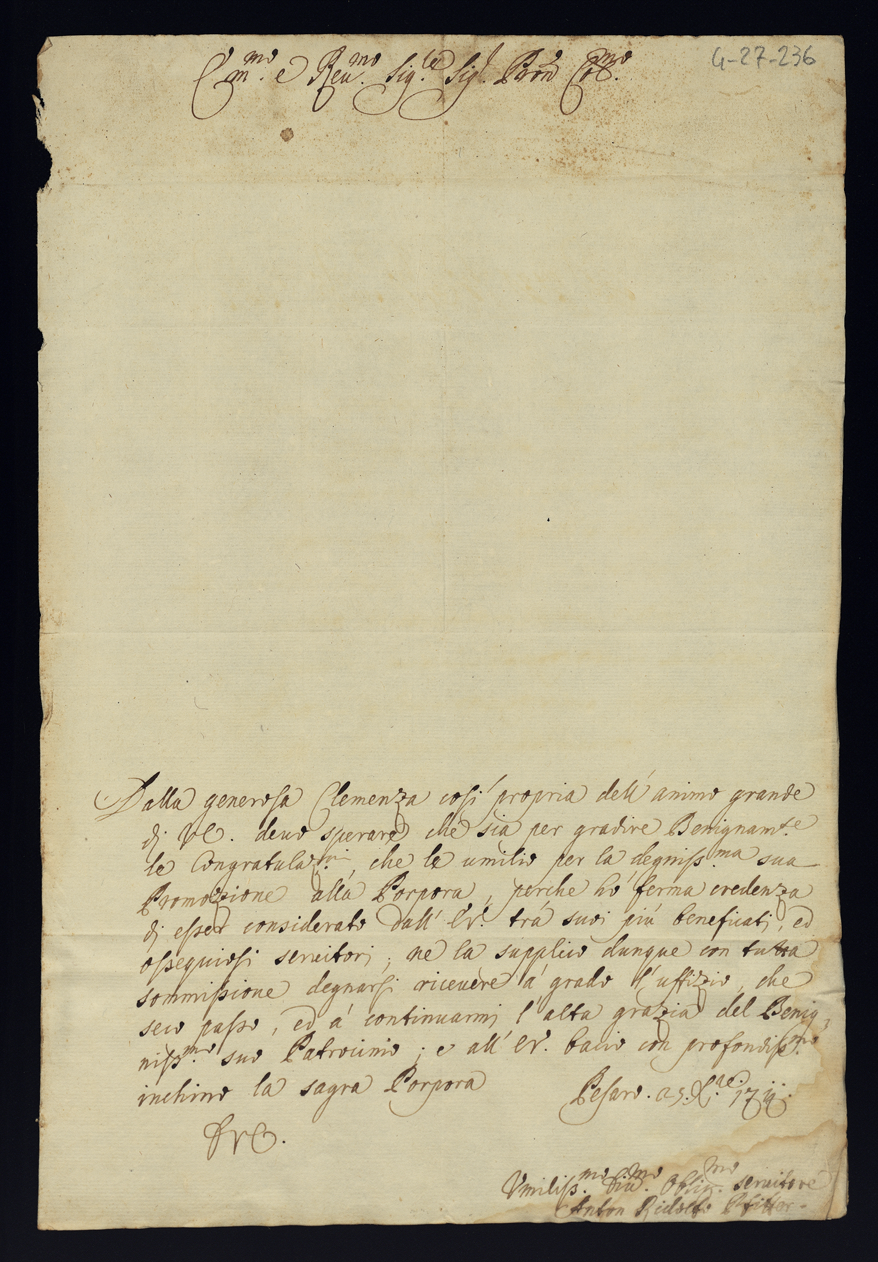 G-27-236
E.mo e Reu.mo Sig.re Sig.r Pron Col.mo
Dalla generosa Clemenza così propria dell'animo grande
di VE. deuo sperare che sia per gradire Benignam.te
le Congratulaz.ni, che le umilio per la degniss.ma sua
Promozzione alla Porpora, perche hò ferma credenza
di esser considerato dall'EV. trà suoi più beneficati, ed
ossequiosi seruitori; ne la supplico dunque con tutta
sommissione degnarsi riceuere à grado l'uffizio, che
seco passo, ed à continuarmi l'alta grazia del Benig,
niss.mo suo Patrocinio; e all'EV. bacio con profondiss.mo
inchino la sagra Porpora
Pesaro. a 5. X.ae 17
Vmiliss.mo Diu.mo Oblig.mo seruitore
Anton